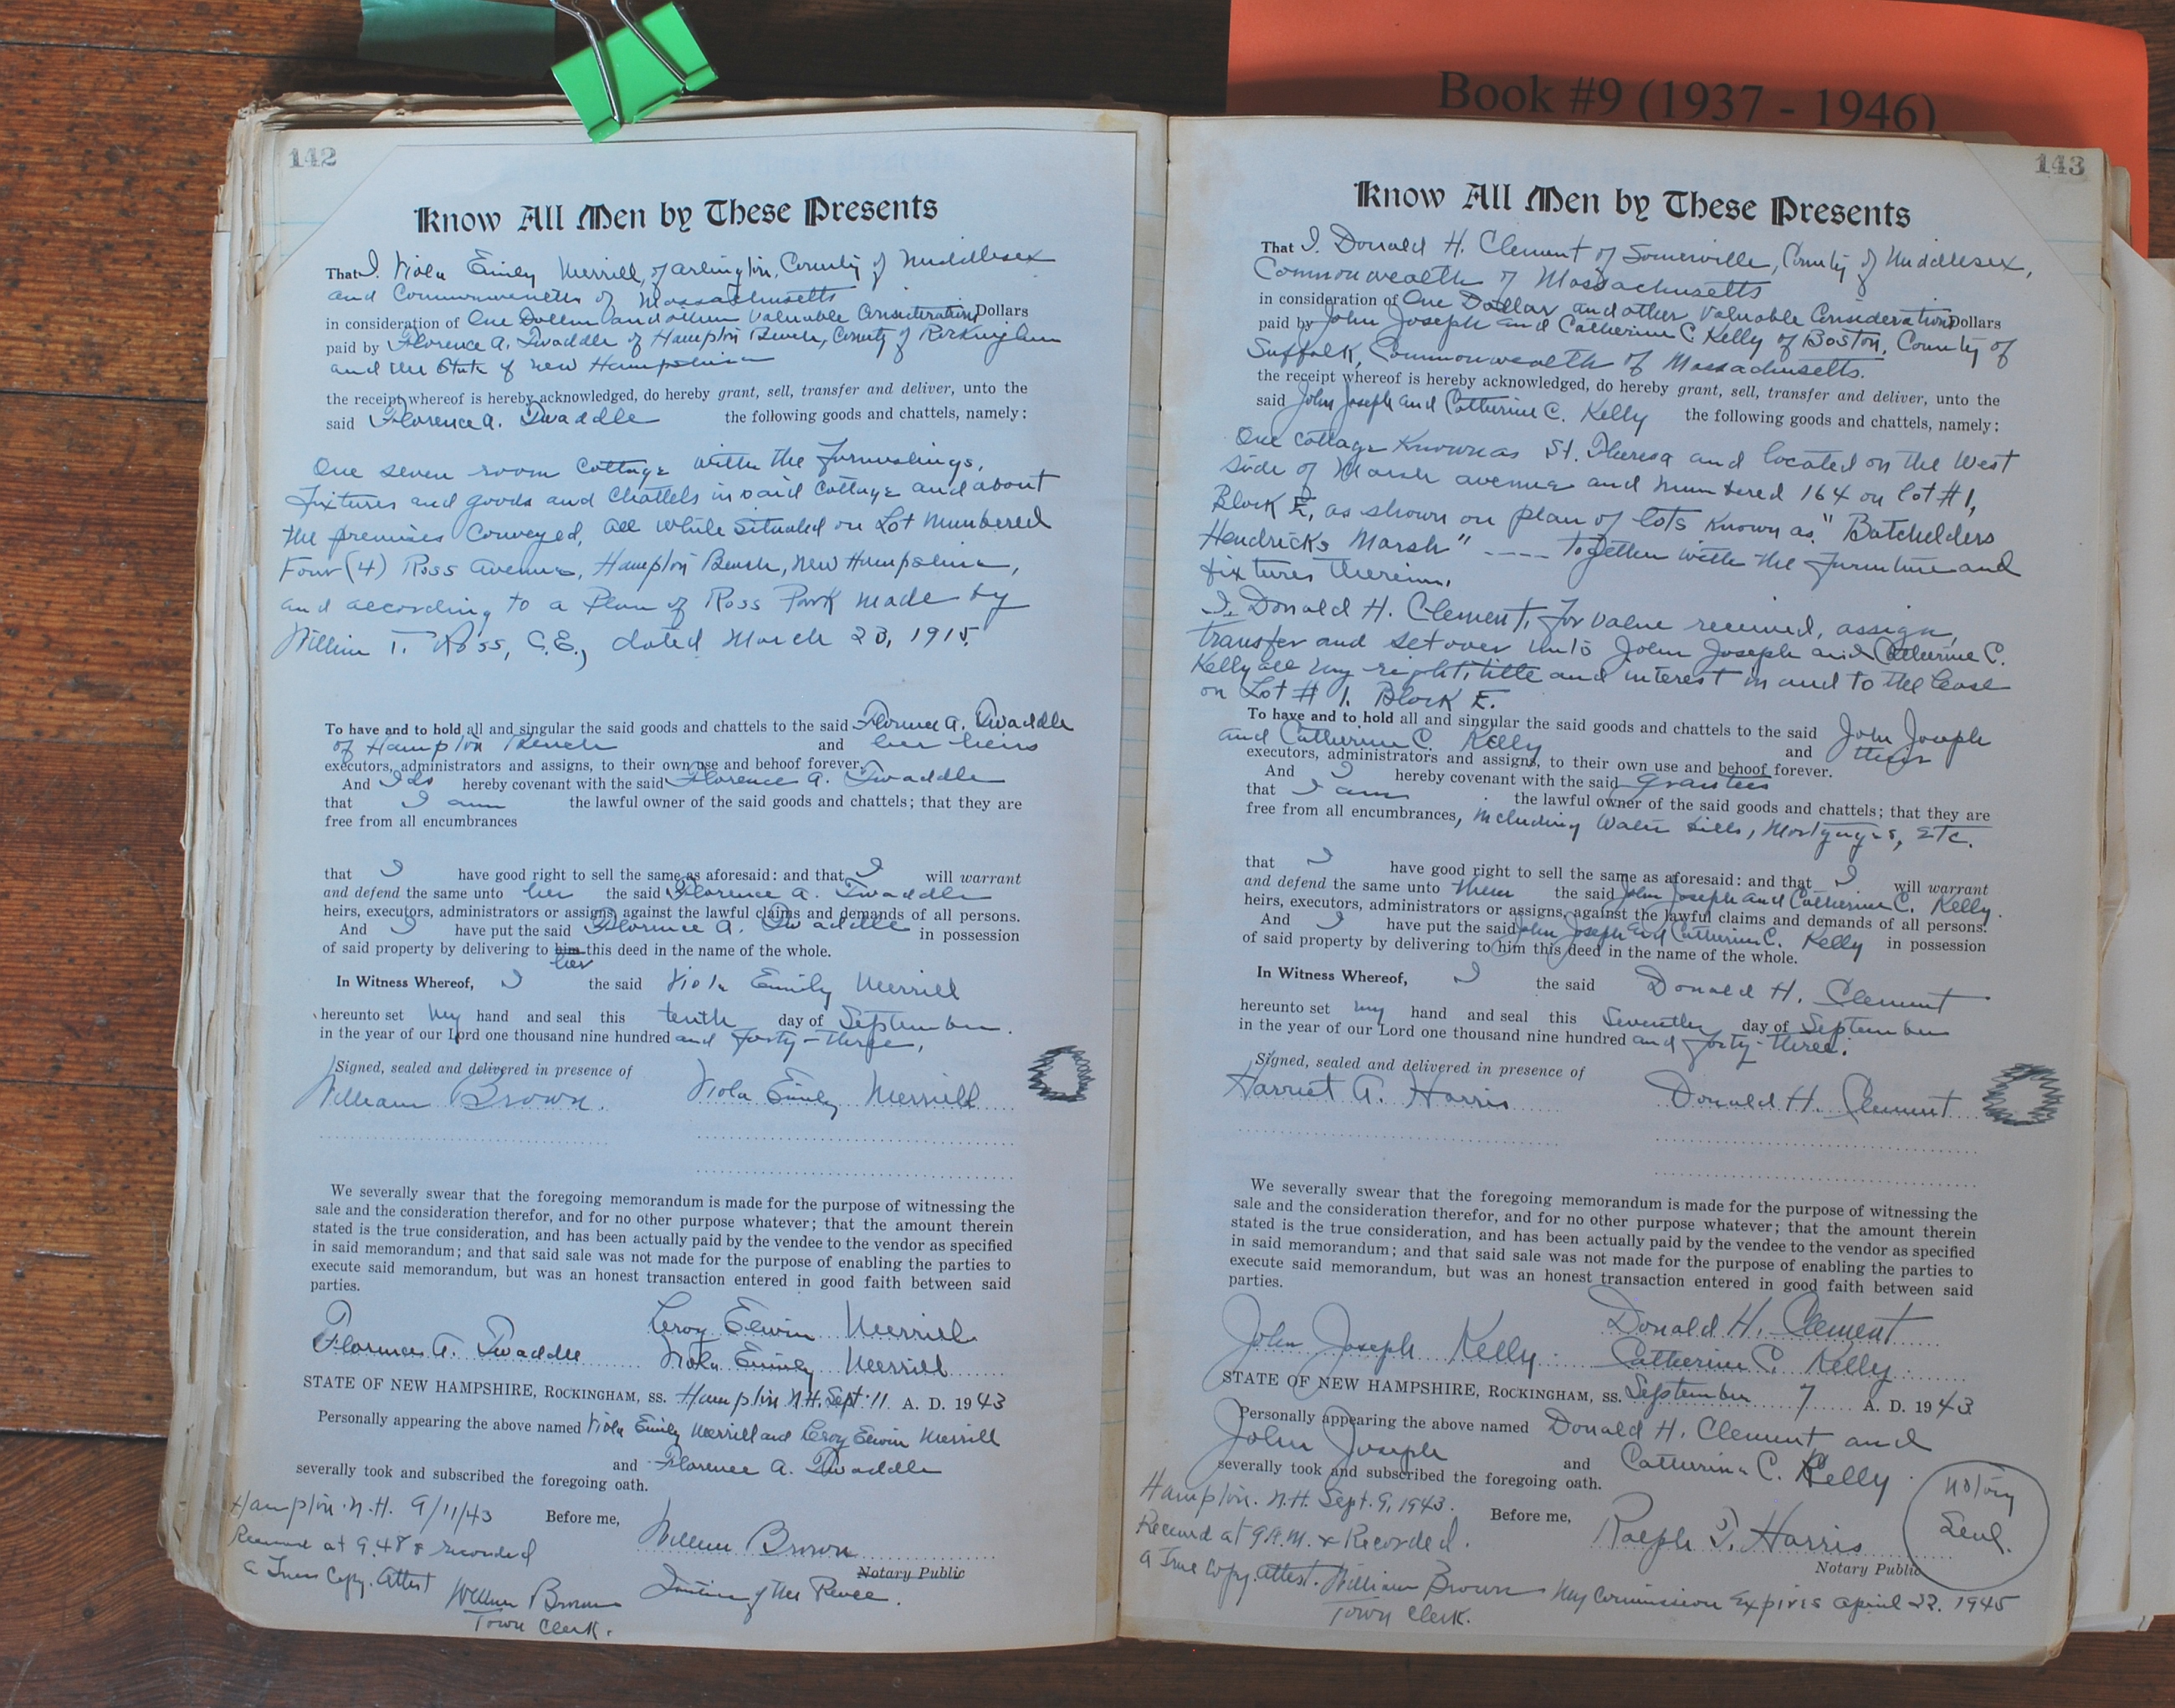 Book #9 (1937 - 1946)
142
Know All Men by These Presents
That I, Viola Emily Merrill, of Arlington, County of Middlesex
and Commonwealth of Massachusetts
in consideration of One Dollar and other Valuable Considerations Dollars
paid by Florence A. Twaddle of Hampton Beach, County of Rockingham
and the State of New Hampshire
the receipt whereof is hereby acknowledged, do hereby grant, sell, transfer and deliver, unto the
said Florence A. Twaddle the following goods and chattels, namely:
One seven room Cottage with the furnishings,
fixtures and goods and chattels in said Cottage and about
the premises Conveyed, all while situated on Lot Numbered
Four (4) Ross Avenue, Hampton Beach, New Hampshire,
and according to a Plan of Ross Park made by
William T. Ross, C.E., dated March 23, 1915.
To have and to hold all and singular the said goods and chattels to the said Florence A. Twaddle
of Hampton Beach and her heirs
executors, administrators and assigns, to their own use and behoof forever.
And I do hereby covenant with the said Florence A. Twaddle
that I am the lawful owner of the said goods and chattels; that they are
free from all encumbrances
that I have good right to sell the same as aforesaid: and that I will warrant
and defend the same unto her the said Florence A. Twaddle
heirs, executors, administrators or assigns, against the lawful claims and demands of all persons.
And I have put the said Florence A. Twaddle in possession
of said property by delivering to him this deed in the name of the whole.
her
In Witness Whereof, I the said Viola Emily Merrill
hereunto set my hand and seal this tenth day of September.
in the year of our Lord one thousand nine hundred and forty-three,
Signed, sealed and delivered in presence of
William Brown. Viola Emily Merrill
We severally swear that the foregoing memorandum is made for the purpose of witnessing the
sale and the consideration therefor, and for no other purpose whatever; that the amount therein
stated is the true consideration, and has been actually paid by the vendee to the vendor as specified
in said memorandum; and that said sale was not made for the purpose of enabling the parties to
execute said memorandum, but was an honest transaction entered in good faith between said
parties.
Leroy Edwin Merrill
Florence A. Twaddle Viola Emily Merrill
STATE OF NEW HAMPSHIRE, ROCKINGHAM, SS. Hampton N.H. Sept. 11 A. D. 1943
Personally appearing the above named Viola Emily Merrill and Leroy Edwin Merrill
and Florence A. Twaddle
severally took and subscribed the foregoing oath.
Hampton. N.H. 9/11/43 Before me,
Received at 9.48 & recorded William Brown
a True Copy. Attest Notary Public
William Brown Justice of the Peace.
Town Clerk.
143
Know All Men by These Presents
That I, Donald H. Clement of Somerville, County of Middlesex,
Commonwealth of Massachusetts
in consideration of One Dollar and other Valuable Considerations Dollars
paid by John Joseph and Catherine C. Kelly of Boston, County of
Suffolk, Commonwealth of Massachusetts.
the receipt whereof is hereby acknowledged, do hereby grant, sell, transfer and deliver, unto the
said John Joseph and Catherine C. Kelly the following goods and chattels, namely:
One cottage Known as St. Theresa and located on the West
side of Marsh avenue and numbered 164 on lot #1,
Block E, as shown on plan of lots known as "Batchelders
Hendricks Marsh" ---- Together with the furniture and
fixtures therein.
I, Donald H. Clement, for value received, assign,
transfer and set over unto John Joseph and Catherine C.
Kelly all my right, title and interest in and to the lease
on Lot #1. Block E.
To have and to hold all and singular the said goods and chattels to the said John Joseph
and Catherine C. Kelly and their
executors, administrators and assigns, to their own use and behoof forever.
And I hereby covenant with the said grantees
that I am the lawful owner of the said goods and chattels; that they are
free from all encumbrances, including Water bills, Mortgages, etc.
that I have good right to sell the same as aforesaid: and that I will warrant
and defend the same unto them the said John Joseph and Catherine C. Kelly.
heirs, executors, administrators or assigns, against the lawful claims and demands of all persons.
And I have put the said John Joseph and Catherine C. Kelly in possession
of said property by delivering to him this deed in the name of the whole.
In Witness Whereof, I the said Donald H. Clement
hereunto set my hand and seal this Seventh day of September
in the year of our Lord one thousand nine hundred and forty-three.
Signed, sealed and delivered in presence of
Harriet A. Harris Donald H. Clement
We severally swear that the foregoing memorandum is made for the purpose of witnessing the
sale and the consideration therefor, and for no other purpose whatever; that the amount therein
stated is the true consideration, and has been actually paid by the vendee to the vendor as specified
in said memorandum; and that said sale was not made for the purpose of enabling the parties to
execute said memorandum, but was an honest transaction entered in good faith between said
parties.
Donald H. Clement
John Joseph Kelly. Catherine C. Kelly.
STATE OF NEW HAMPSHIRE, ROCKINGHAM, SS. September 7 A. D. 1943
Personally appearing the above named Donald H. Clement and
John Joseph and Catherine C. Kelly.
severally took and subscribed the foregoing oath.
Hampton. N.H. Sept. 9, 1943. Before me,
Received at 9 A.M. & Recorded. Ralph T. Harris
Notary Seal.
Notary Public
a True Copy. Attest. William Brown My Commission Expires April 22, 1945
Town Clerk.